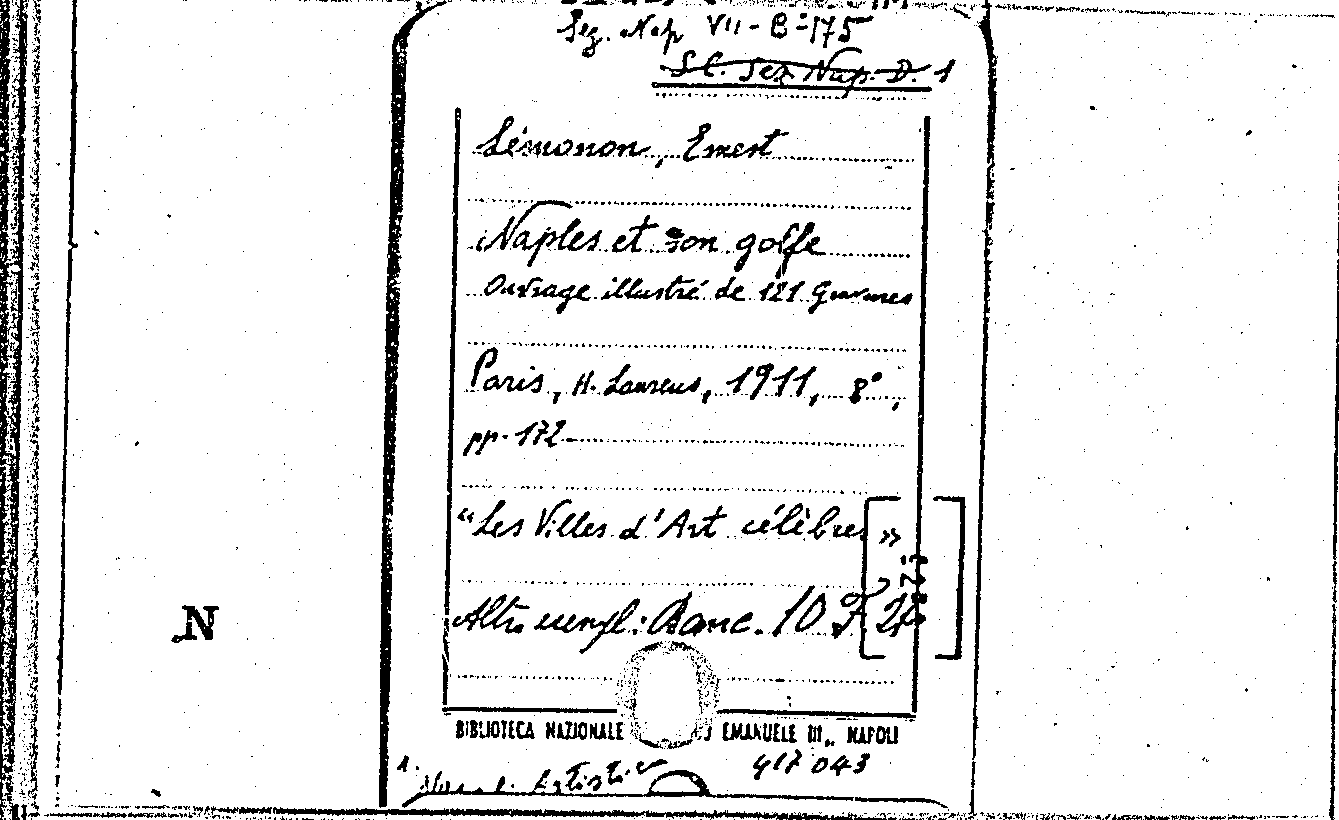 Sez. Nap VII-B-175
S.C. Sez. Nap. D. 1
Lémonon, Ernest
Naples et son golfe
Ouvrage illustré de 121 Gravures
Paris, H. Laurens, 1911, 8°,
pp. 172
"Les Villes d'Art célèbres"
Altro esempl.: Banc. 10 F. 24
N
BIBLIOTECA NAZIONALE EMANUELE III„ NAPOLI
417043
1.